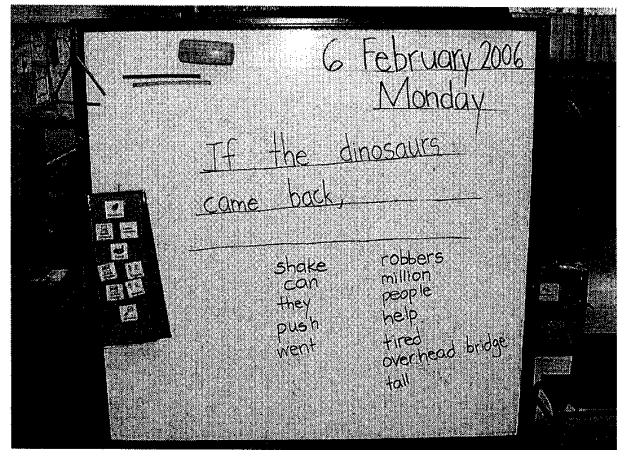 6 February 2006
Monday
If the dinosaurs
came back,
shake
can
they
push
went
robbers
million
people
help
tired
overhead bridge
tall